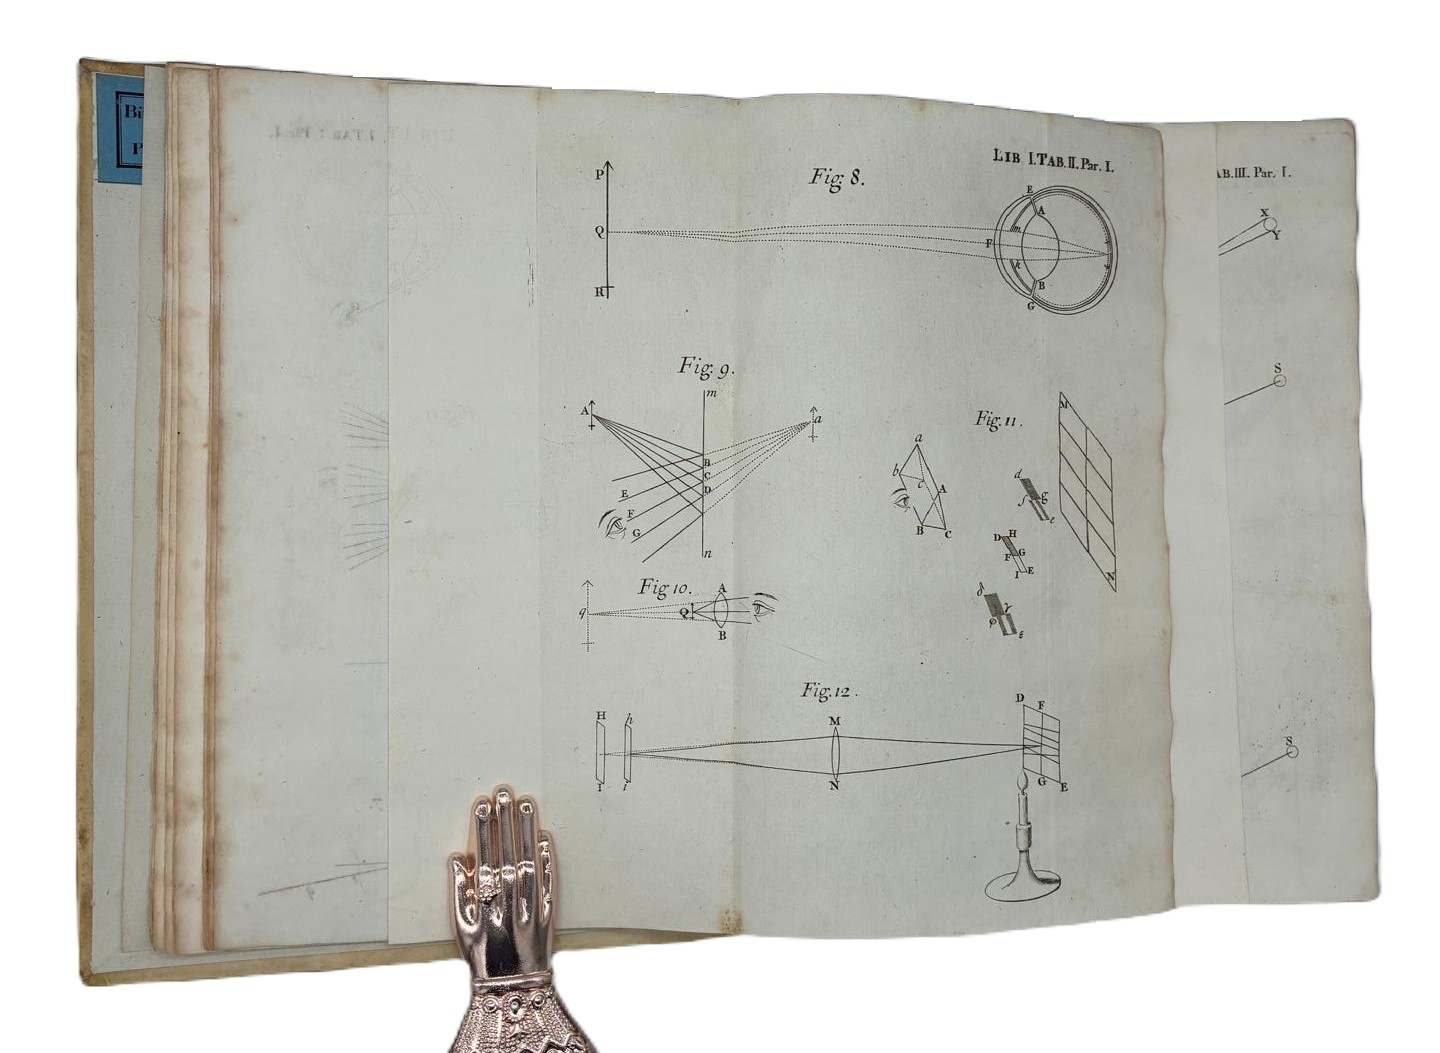 LIB I.TAB.II.Par. I.
AB.III. Par. I.
Fig: 8.
P
Q
R
E
A
m
F
B
G
X
Y
Fig: 9.
A
m
a
B
C
D
E
F
G
n
Fig. 11.
M
a
b
c
A
B
C
d
g
f
e
D H
F G
I E
δ
γ
φ
ε
N
S
Fig 10.
q
Q
A
B
Fig. 12.
H
h
I
i
M
N
D
F
G
E
S